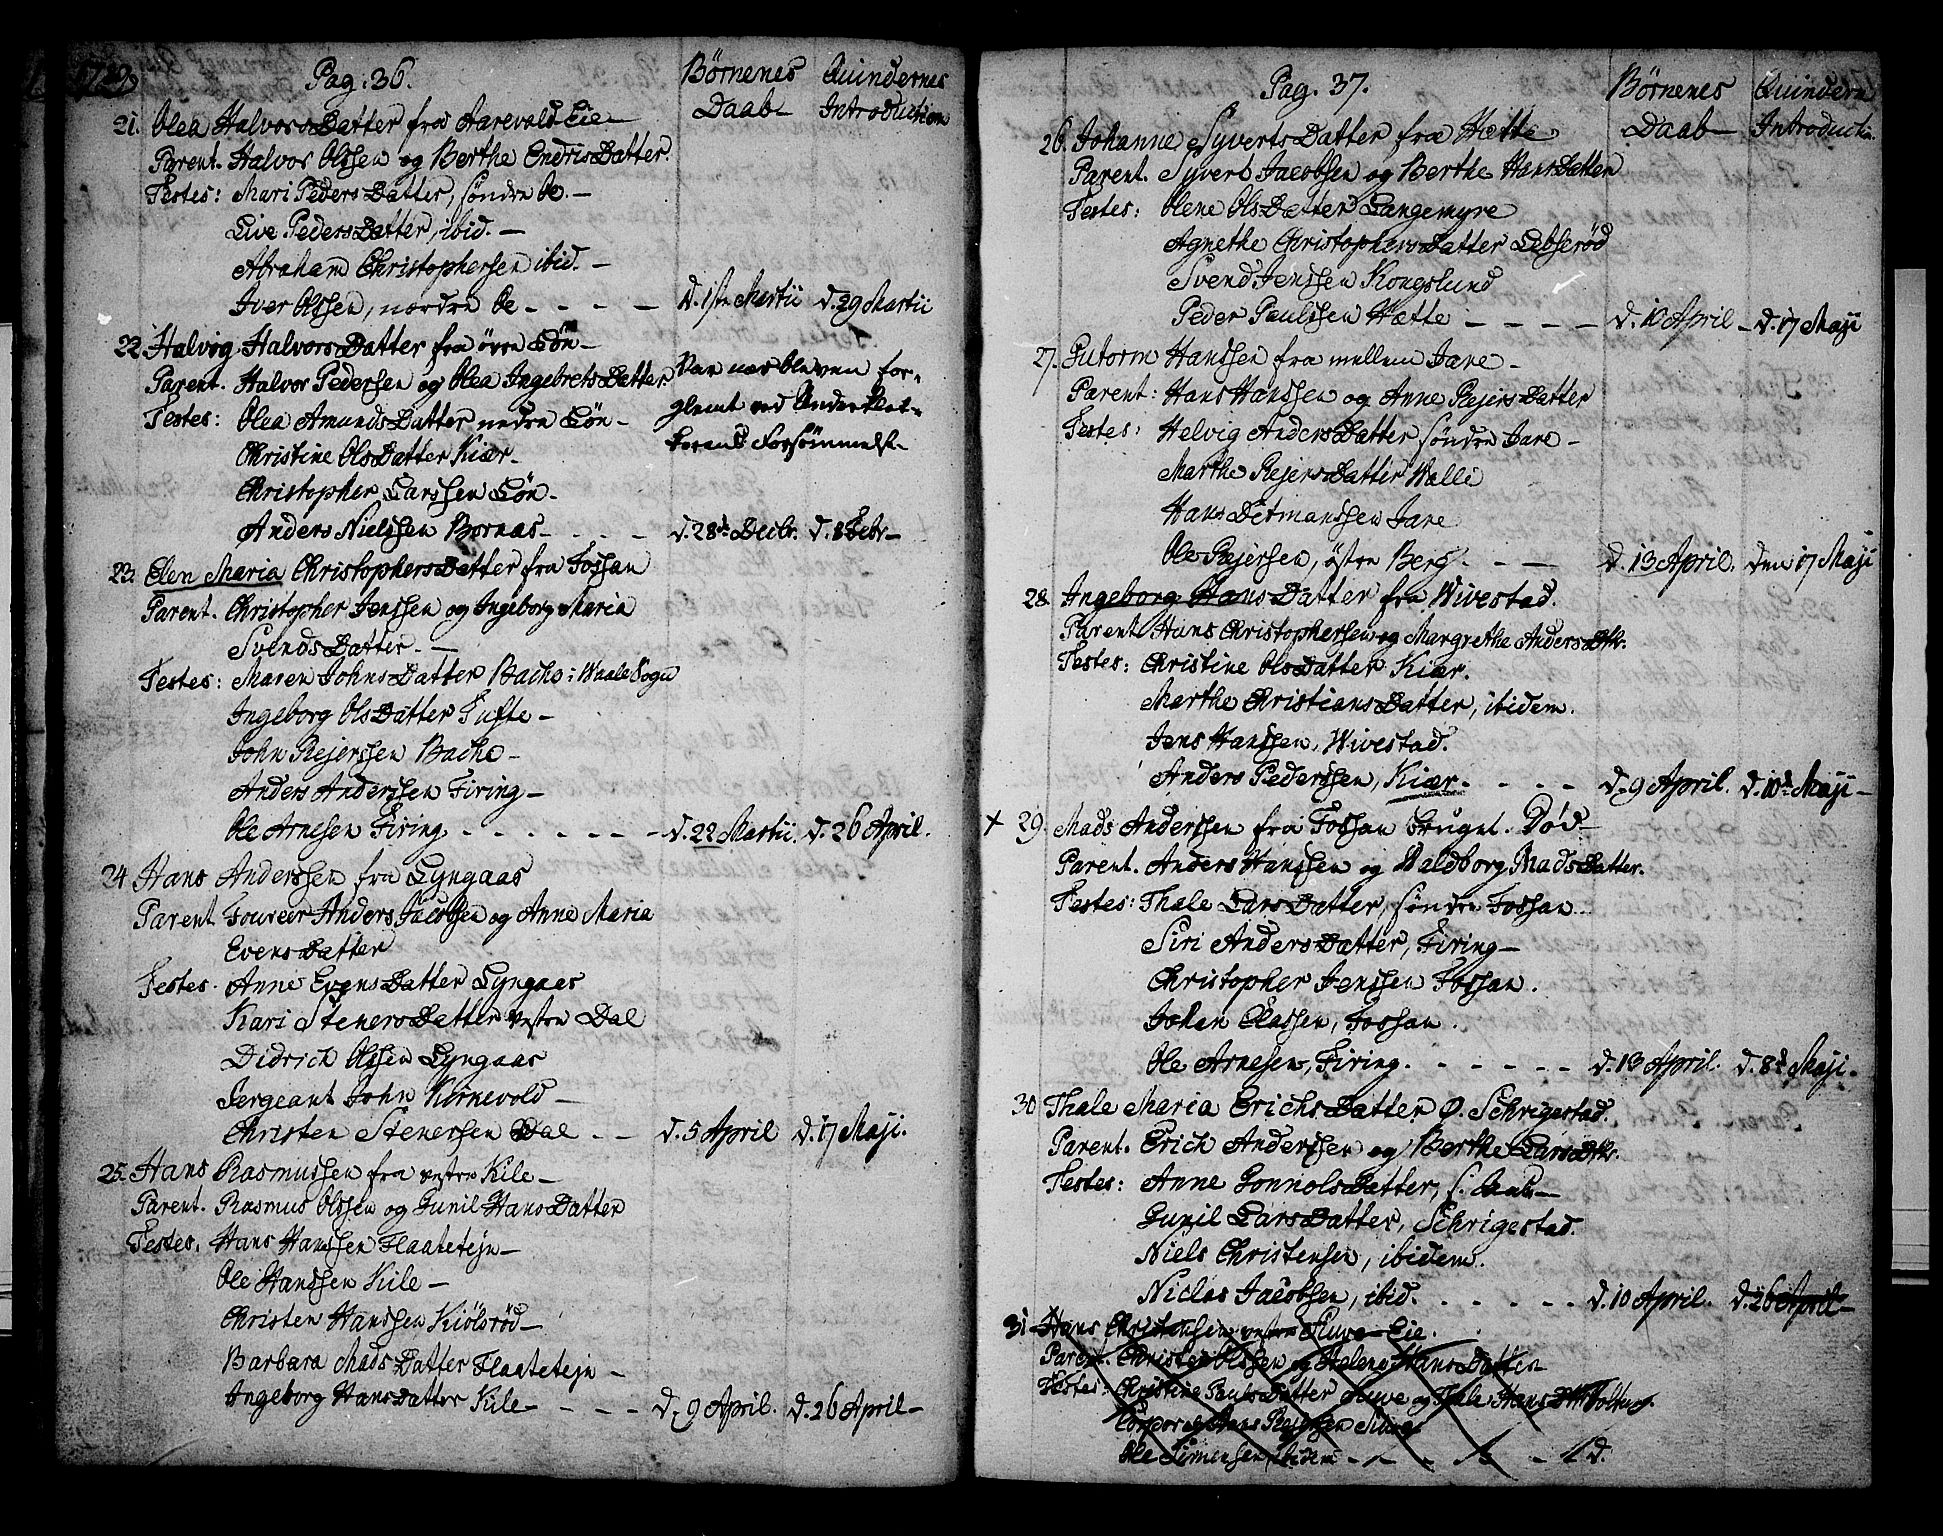 Pag: 36.
Børnenes Daab
Quindernes Introduction
21. Olea HalvorsDatter fra Aarevold Eie
Parent. Halvor Olssen og Berthe EndrisDatter.
Testes: Mari PedersDatter, søndre Oe.
Live PedersDatter, ibid.
Abraham Christophersen ibid.
Iver Olssen, nordre Oe - - - - d. 1ste Martii d. 29 Martii
22. Halvig HalvorsDatter fra øvre Søn
Parent. Halvor Pedersen og Olea IngebretsDatter
Testes: Olea AmundsDatter nedre Søn
Christine OlsDatter Kiær.
Christopher Larssen Søn.
Anders Nielssen Bornas - - - -
Var næs bleven for-
glemt ved Underklok-
kerens Forsømmelse.
d. 28de Decbr. d. 8 Febr
23. Elen Maria ChristophersDatter fra Fossan
Parent. Christopher Jenssen og Ingeborg Maria
SvendsDatter.
Testes: Maren JohnsDatter Bache: Waale Sogn
Ingeborg OlsDatter Tufte
John Rejerssen Bache
Anders Anderssen Firing
Ole Arnesen Firing - - - - - - d. 22 Martii. d. 26 April.
24 Hans Anderssen fra Lyngaas
Parent. Foureer Anders Jacobsen og Anne Maria
EvensDatter
Testes. Anne EvensDatter Lyngaas
Kari StenersDatter vestre Dal
Didrich Olssen Lyngaas
Sergeant John Kirnevold
Christen Stenersen Dal - - d. 5 April d. 17 Maji.
25. Hans Rasmussen fra vestre Kile
Parent. Rasmus Olssen og Gunil HansDatter
Testes. Hans Hanssen Flaatetejn
Ole Hanssen Kile
Christen Hanssen Kiölsröd
Barbara MadsDatter Flaatetejn
Ingeborg HansDatter Kile - - - - d. 9 April. d. 26 April
Pag. 37.
Børnenes Daab
Quindern Introducti.
26. Johanne SyvertsDatter fra Hætte
Parent. Syvert Jacobsen og Berthe HansDatter
Testes: Olene OlsDatter Langemyre
Agnethe ChristophersDatter Lebseröd
Svend Jenssen Kongslund
Peder Paulssen Hætte - - - - d. 10 April d. 17 Maji
27. Gutorm Hanssen fra mellem Jare
Parent: Hans Hanssen og Anne RejersDatter
Testes: Helvig AndersDatter søndre Jare
Marthe RejersDatter Walle
Hans Detmanssen Jare
Ole Rejersen, östre Berg. - - d. 13 April. den 17 Maji
28. Ingeborg HansDatter fra Wivestad.
Parent Hans Christophersen og Margretha AndersDtr.
Testes: Christine OlsDatter Kiær.
Marthe ChristiansDatter, ibidem.
Jens Hanssen, Wivestad.
Anders Pederssen, Kiær. - - - d. 9 April. d. 10de Maji
× 29. Mads Anderssen fra Fossan Brugnl. Död
Parent. Anders Hanssen og Waldborg MadsDatter.
Testes: Thale LarsDatter, söndre Fossan
Siri AndersDatter, Firing
Christopher Jenssen Fossan.
Johan Classen, Fossan.
Ole Arnesen, Firing. - - - - - d. 13 April. d. 8de Maji.
30. Thale Maria ErichsDatter Ø. Schrigestad.
Parent. Erich Anderssen og Berthe LarsDtr.
Testes: Anne GonnolsDatter,
Gunil LarsDatter, Schrigestad.
Niels Christensen, ibidem.
Niclas Jacobsen, ibid. - - - - - d. 10 April. d. 26 April
31 Hans Christensen vestre Huve Eie.
Parent. Christen Olssen og Helene HansDatter
Testes: Christine PaulsDatter Huve og Thale Hans Dtr
Corporal Hans Rejerssen
Ole Simensen, ibidem - - - - d.